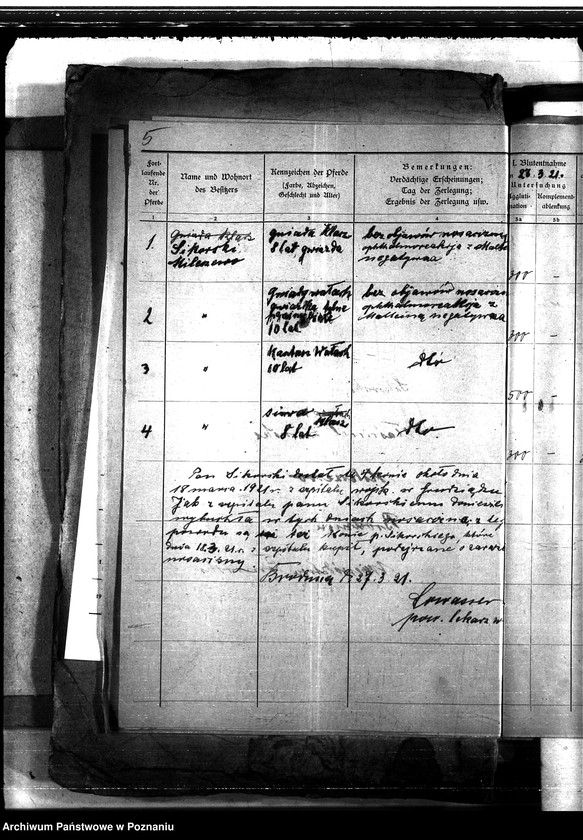 5
Fort-
laufende
Nr.
der
Pferde
Name und Wohnort
des Besitzers
Kennzeichen der Pferde
(Farbe, Abzeichen,
Geschlecht und Alter)
Bemerkungen:
Verdächtige Erscheinungen;
Tag der Zerlegung;
Ergebnis der Zerlegung usw.
I. Blutentnahme
3. 21.
Untersuchung
Aggluti-
nation
Komplement-
ablenkung
1 2 3 4 5a 5b
1. Sikorski
Milszewo
gniada klacz
8 lat, gwiazda
bez objawów nosacizny
ophtalmoreakcja z Mallein
negatywna
300 -
2 "
Gniady wałach
gwiazdka
10 lat
bez objawów nosacizn
ophtalmoreakcja z
Malleiną negatywna
300 -
3 "
Kasztan Wałach
10 lat
dto
500 -
4 "
siwa
klacz
8 lat
dto
300 -
Pan Sikorski dostał konie około dnia
18 marca 1921 r. z szpitala wojsk. w Grudziądzu
Jak z szpitala panu Sikorskiemu doniesiono
wybuchła w tych dniach nosacizna, z tego
powodu są też konie p. Sikorskiego, które
dnia 18.3.21 r. z szpitala kupił, podejrzane o zarazę
nosacizny
Brodnica 27.3.21.
pow. lekarz w
Archiwum Państwowe w Poznaniu